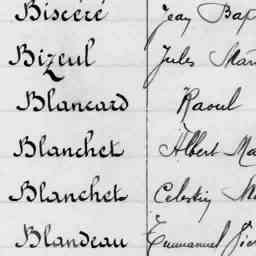 Biscéré Jean Bap
Bizeul Jules Mar
Blancard Raoul
Blanchet Albert Ma
Blanchet Célestin M
Blandeau Emmanuel Pier